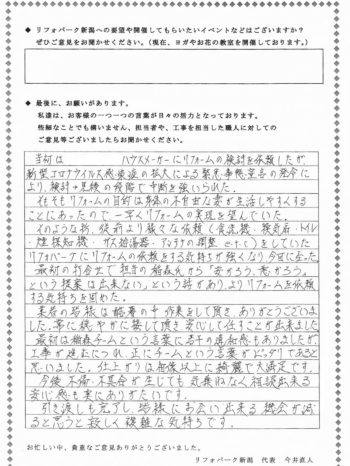 ◆ リフォパーク新潟への要望や開催してもらいたいイベントなどはございますか？
ぜひご意見をお聞かせください。（現在、ヨガやお花の教室を開催しております。）
◆ 最後に、お願いがあります。
私達は、お客様の一つ一つの言葉が日々の活力となっております。
些細なことでも構いません、担当者や、工事を担当した職人に対しての
ご意見等ございましたらお聞かせください。
当初は ハウスメーカーにリフォームの検討を依頼したが、
新型コロナウイルス感染症の拡大による緊急事態宣言の発令に
より、検討 の段階で中断を強いられた。
そもそもリフォームの目的は 身体の不自由な妻が生活しやすくする
ことにあったので 一早くリフォームの実現を望んでいた。
そのような折、従前より様々な依頼（食洗機・換気扇・
煙探知機・ガス給湯器・アンテナの調整 e.t.c）をしていた
リフォパークにリフォームの依頼をする気持ちが強くなり今回に至った。
最初の打合せで 担当の稲森氏から「安かろう、悪かろう」
という提案は出来ない。という話があり よりリフォームを依頼
する気持ちを固めた。
業者の皆様は酷暑の中 作業をして頂き ありがとうございま
した。常に穏やかに接して頂き 安心して任すことが出来ました
最初は稲森チームという言葉に若干の違和感もありましたが
工事が進むにつれ、正にチームという言葉がピッタリであると
思いました。仕上がりは想像以上に綺麗で大満足です。
今後 不備・不具合が生じても 気兼ねなく相談出来る
安心感も実にありがたいです。
引き渡しも完了し、皆様にお会い出来る機会が減
ると思うと 淋しく複雑な気持ちです。
お忙しい中、貴重なご意見ありがとうございました。
リフォパーク新潟 代表 今井直人